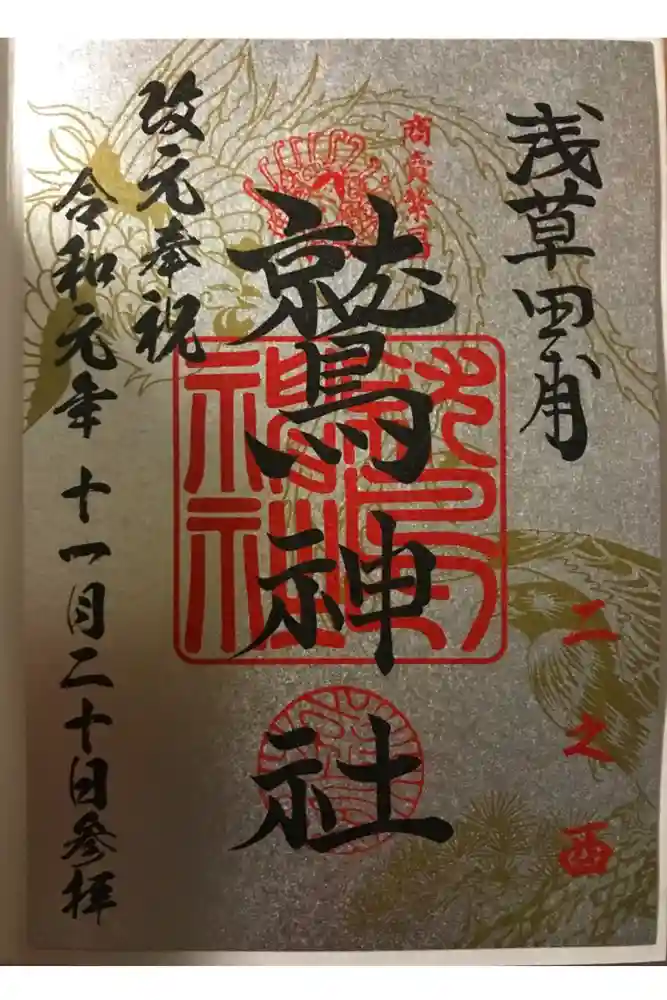 浅草田甫
二之酉
商売繁昌
鷲神社
改元奉祝
令和元年 十一月二十日参拝